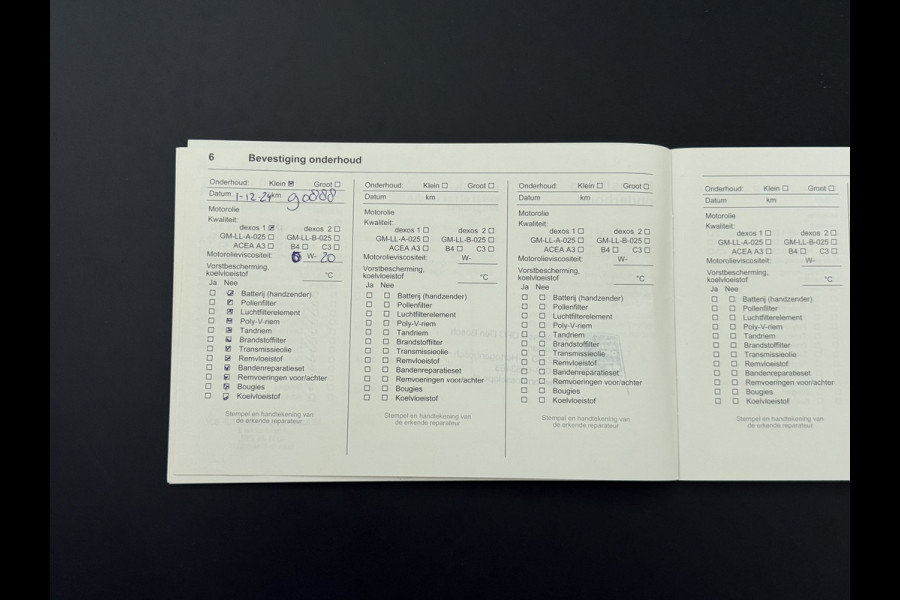 6 Bevestiging onderhoud
Onderhoud: Klein ☑ Groot ☐
Datum 1-12-24 km 90888
Motorolie
Kwaliteit:
dexos 1 ☑ dexos 2 ☐
GM-LL-A-025 ☐ GM-LL-B-025 ☐
ACEA A3 ☐ B4 ☐ C3 ☐
Motorolieviscositeit: 0 W- 20
Vorstbescherming,
koelvloeistof °C
Ja Nee
☐ ☑ Batterij (handzender)
☐ ☑ Pollenfilter
☐ ☑ Luchtfilterelement
☐ ☑ Poly-V-riem
☐ ☑ Tandriem
☐ ☑ Brandstoffilter
☐ ☑ Transmissieolie
☐ ☑ Remvloeistof
☐ ☑ Bandenreparatieset
☐ ☑ Remvoeringen voor/achter
☐ ☑ Bougies
☐ ☑ Koelvloeistof
Stempel en handtekening van
de erkende reparateur
Onderhoud: Klein ☐ Groot ☐
Datum km
Motorolie
Kwaliteit:
dexos 1 ☐ dexos 2 ☐
GM-LL-A-025 ☐ GM-LL-B-025 ☐
ACEA A3 ☐ B4 ☐ C3 ☐
Motorolieviscositeit: W-
Vorstbescherming,
koelvloeistof °C
Ja Nee
☐ ☐ Batterij (handzender)
☐ ☐ Pollenfilter
☐ ☐ Luchtfilterelement
☐ ☐ Poly-V-riem
☐ ☐ Tandriem
☐ ☐ Brandstoffilter
☐ ☐ Transmissieolie
☐ ☐ Remvloeistof
☐ ☐ Bandenreparatieset
☐ ☐ Remvoeringen voor/achter
☐ ☐ Bougies
☐ ☐ Koelvloeistof
Stempel en handtekening van
de erkende reparateur
Onderhoud: Klein ☐ Groot ☐
Datum km
Motorolie
Kwaliteit:
dexos 1 ☐ dexos 2 ☐
GM-LL-A-025 ☐ GM-LL-B-025 ☐
ACEA A3 ☐ B4 ☐ C3 ☐
Motorolieviscositeit: W-
Vorstbescherming,
koelvloeistof °C
Ja Nee
☐ ☐ Batterij (handzender)
☐ ☐ Pollenfilter
☐ ☐ Luchtfilterelement
☐ ☐ Poly-V-riem
☐ ☐ Tandriem
☐ ☐ Brandstoffilter
☐ ☐ Transmissieolie
☐ ☐ Remvloeistof
☐ ☐ Bandenreparatieset
☐ ☐ Remvoeringen voor/achter
☐ ☐ Bougies
☐ ☐ Koelvloeistof
Stempel en handtekening van
de erkende reparateur
Onderhoud: Klein ☐ Groot ☐
Datum km
Motorolie
Kwaliteit:
dexos 1 ☐ dexos 2 ☐
GM-LL-A-025 ☐ GM-LL-B-025 ☐
ACEA A3 ☐ B4 ☐ C3 ☐
Motorolieviscositeit: W-
Vorstbescherming,
koelvloeistof °C
Ja Nee
☐ ☐ Batterij (handzender)
☐ ☐ Pollenfilter
☐ ☐ Luchtfilterelement
☐ ☐ Poly-V-riem
☐ ☐ Tandriem
☐ ☐ Brandstoffilter
☐ ☐ Transmissieolie
☐ ☐ Remvloeistof
☐ ☐ Bandenreparatieset
☐ ☐ Remvoeringen voor/achter
☐ ☐ Bougies
☐ ☐ Koelvloeistof
Stempel en handtekening van
de erkende reparateur